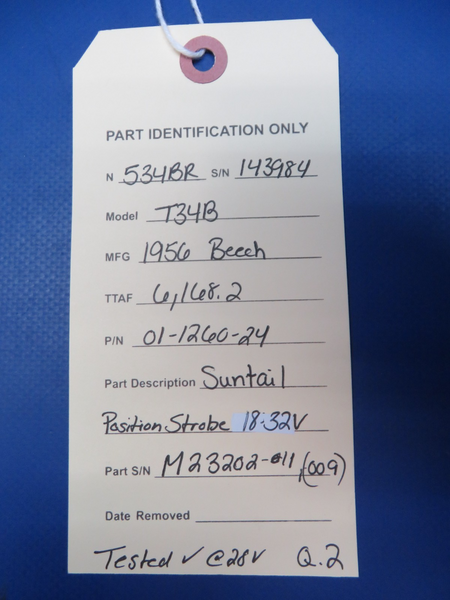 PART IDENTIFICATION ONLY
N 534BR S/N 143984
Model T34B
MFG 1956 Beech
TTAF 6,168.2
P/N 01-1260-24
Part Description Suntail
Position Strobe 18-32V
Part S/N M23202-011,(009)
Date Removed
Tested ✓ @28V Q.2